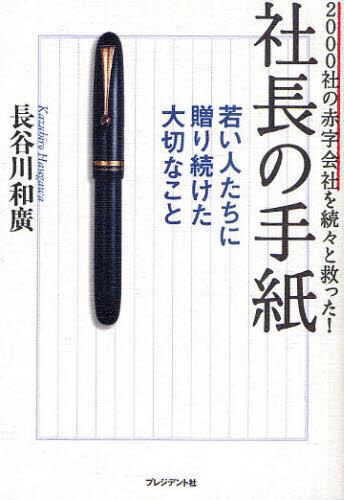 2000社の赤字会社を続々と救った!
社長の手紙
若い人たちに
贈り続けた
大切なこと
Kazuhiro Hasegawa
長谷川和廣
プレジデント社